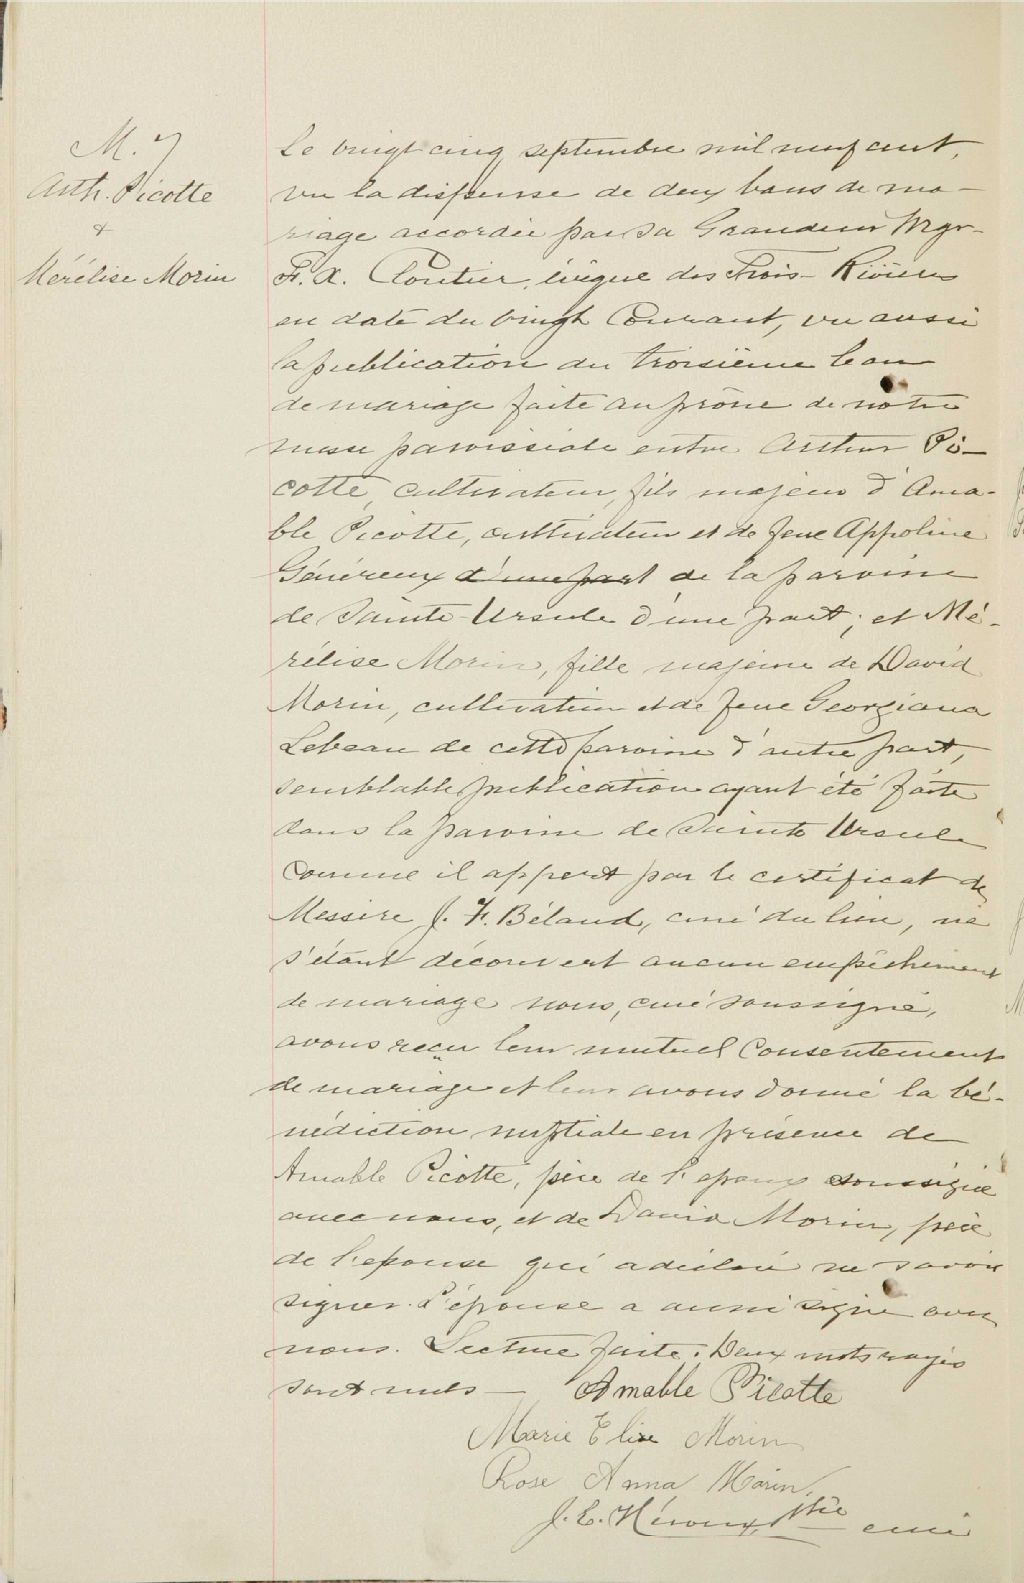 M. 7
Arth. Picotte
+
Mérélise Morin
Le vingt cinq septembre mil neuf cent,
vu la dispense de deux bans de ma-
riage accordée par sa Grandeur Mgr
F. X. Cloutier, évêque des Trois-Rivières
en date du vingt Courant, vu aussi
la publication du troisième ban
de mariage faite au prône de notre
messe paroissiale entre Arthur Pi-
cotte, cultivateur, fils majeur d'Ama-
ble Picotte, cultivateur et de feue Appoline
Généreux d'une part de la paroisse
de Sainte-Ursule d'une part; et Mé-
rélise Morin, fille majeure de David
Morin, cultivateur et de feue Georgiana
Lebeau de cette paroisse d'autre part,
semblable publication ayant été faite
dans la paroisse de Sainte Ursule
comme il appert par le certificat de
Messire J. F. Béland, curé du lieu, ne
s'étant découvert aucun empêchement
de mariage nous, curé soussigné,
avons reçu leur mutuel Consentement
de mariage et leur avons donné la bé-
nédiction nuptiale en présence de
Amable Picotte, père de l'epoux soussigné
avec nous, et de David Morin, père
de l'epouse qui a déclaré ne savoir
signer. L'épouse a aussi signé avec
nous. Lecture faite. Deux mots rayés
sont nuls — Amable Picotte
Marie Elise Morin
Rose Anna Morin
J. E. Héroux, Ptre curé